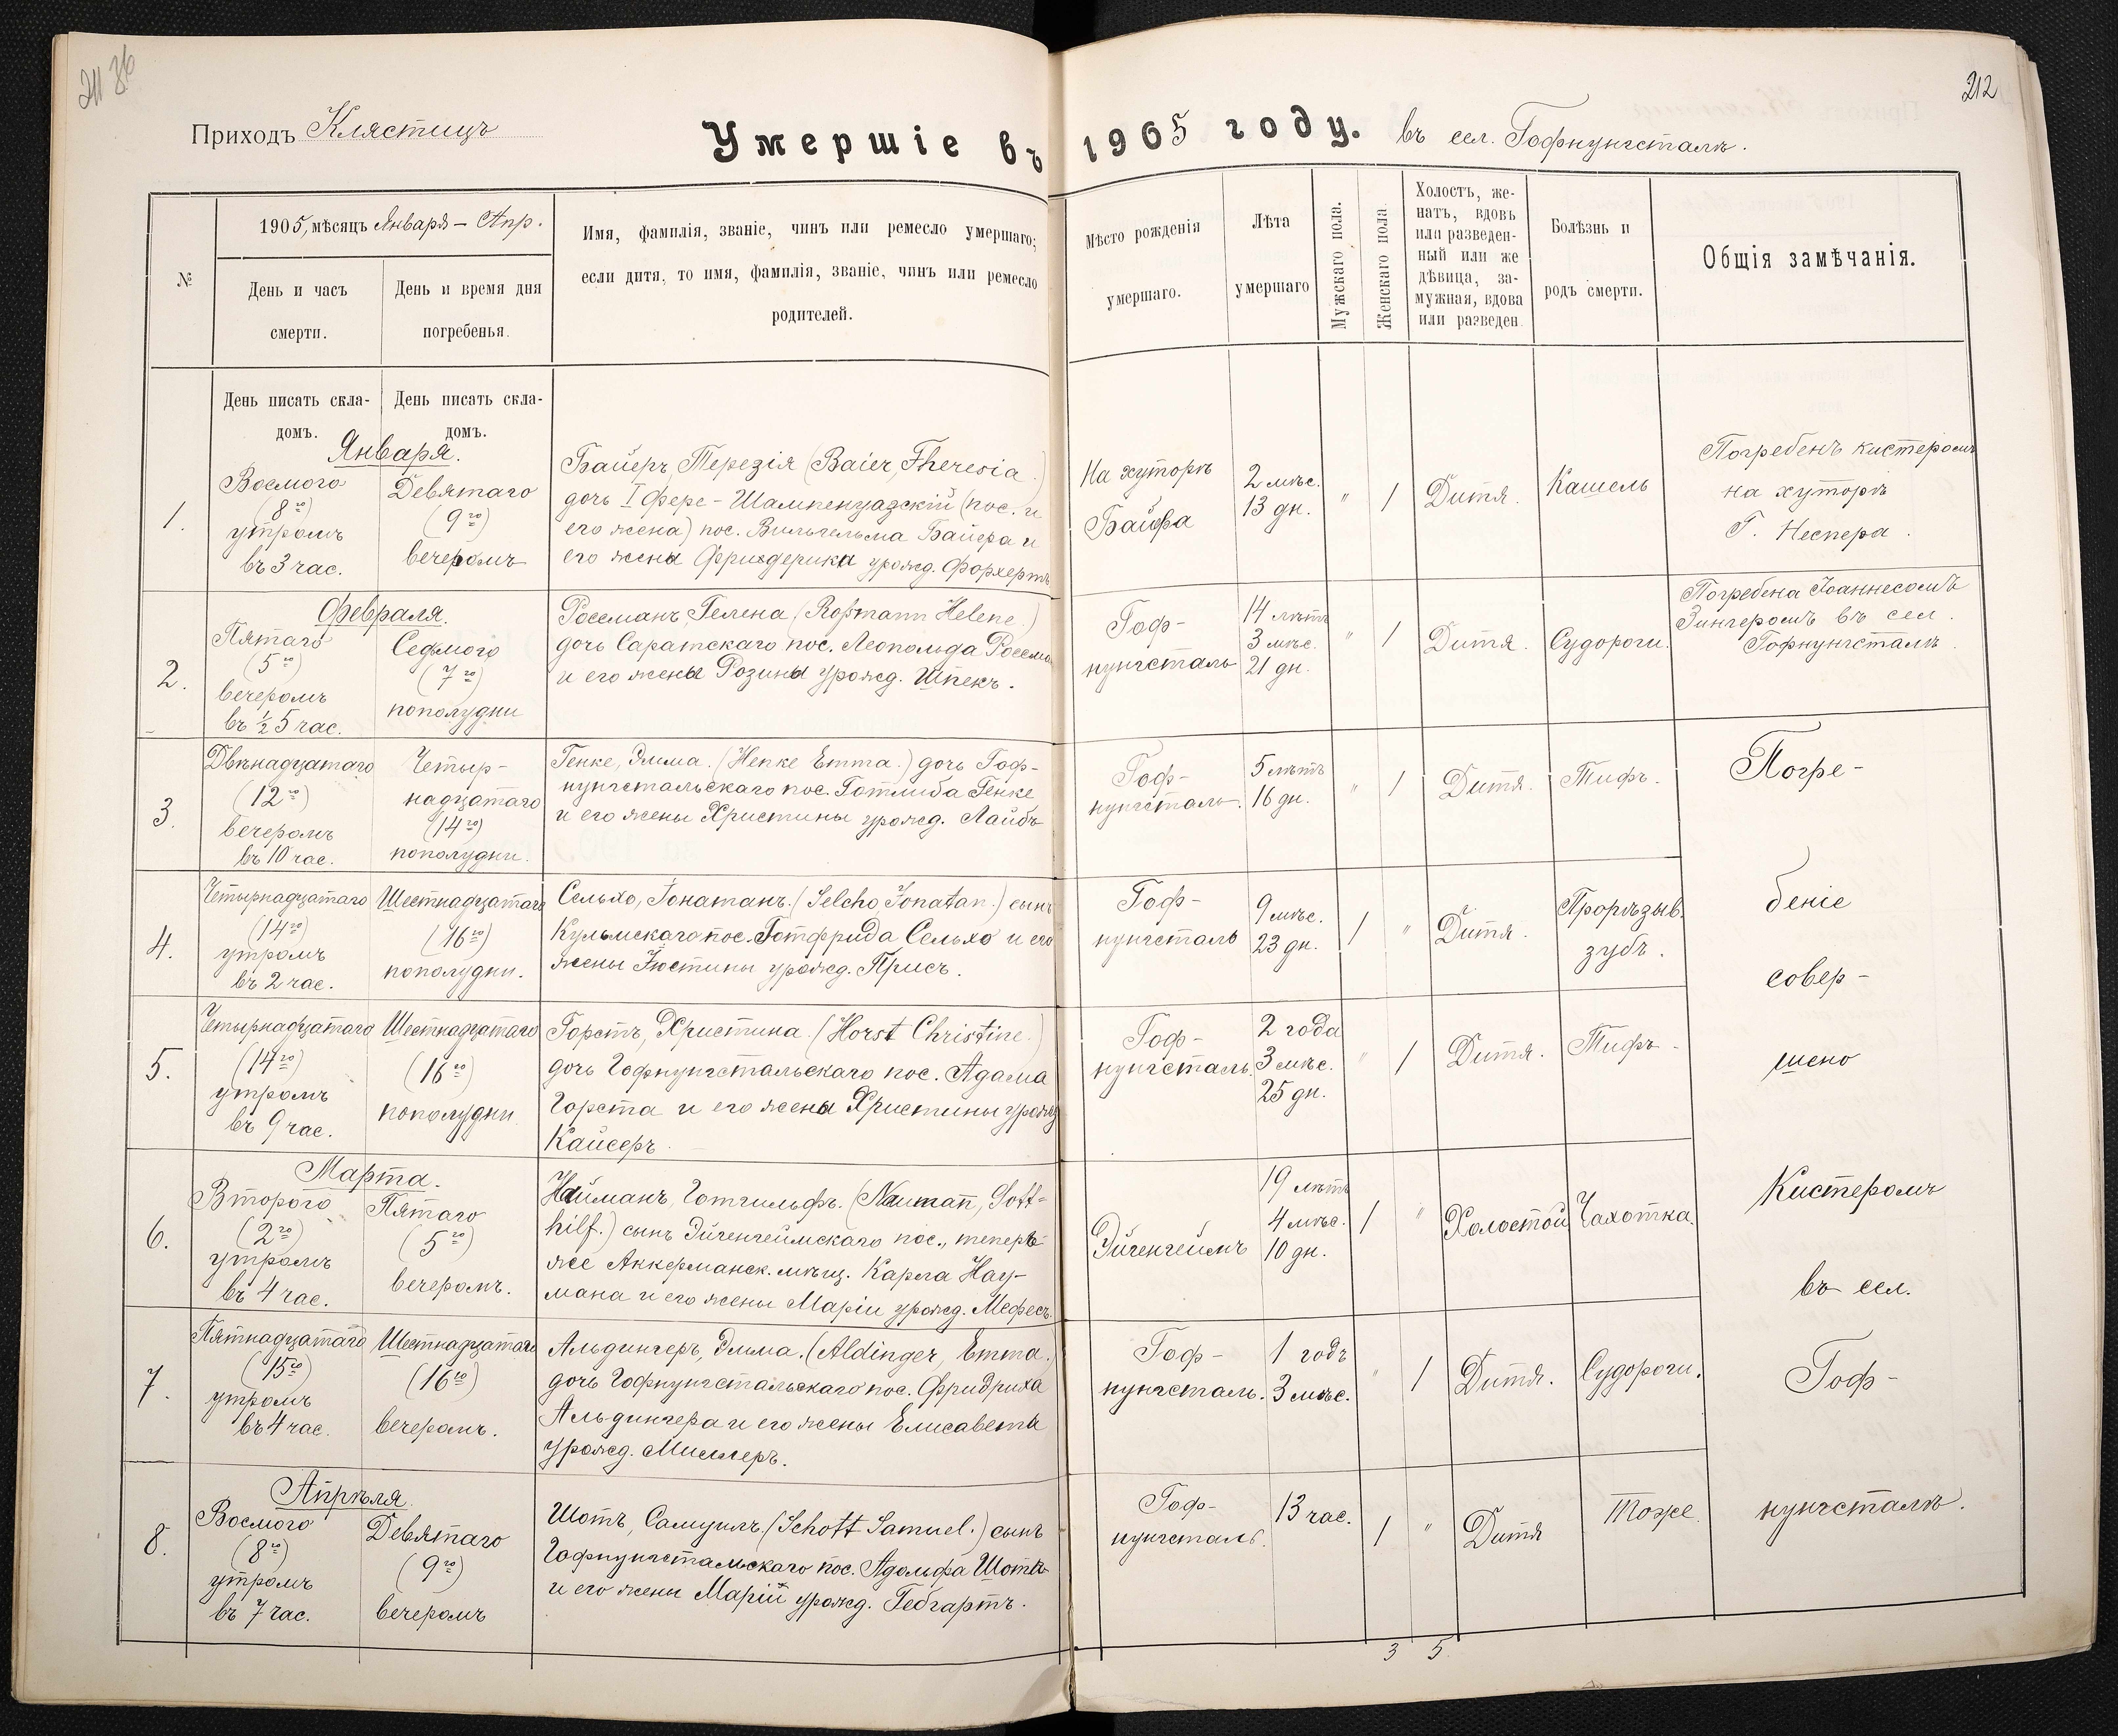 211 36
212
Приходъ Клястицъ
Умершіе въ 1905 году. въ сел. Гофнунгсталѣ.
№
1905, мѣсяцъ Января – Апр.
День и часъ
смерти.
День и время дня
погребенья.
Имя, фамилія, званіе, чинъ или ремесло умершаго;
если дитя, то имя, фамилія, званіе, чинъ или ремесло
родителей.
Мѣсто рожденія
умершаго.
Лѣта
умершаго
Мужскаго пола.
Женскаго пола.
Холостъ, же-
натъ, вдовъ
или разведен-
ный или же
дѣвица, за-
мужная, вдова
или разведен.
Болѣзнь и
родъ смерти.
Общія замѣчанія.
День писать скла-
домъ.
День писать скла-
домъ.
Января.
1.
Восмого
(8го)
утромъ
въ 3 час.
Девятаго
(9го)
вечеромъ
Байеръ, Терезія (Baier, Theresia.)
дочь I Фере-Шампенуазскій (пос. и
его жена) пос. Вильгельма Байера и
его жены Фридерики урожд. Форхертъ
На хуторѣ
Байера
2 мѣс.
13 дн.
" 1
Дитя.
Кашель
Погребенъ кистеромъ
на хуторѣ
Г. Неспера.
Февраля.
2.
Пятаго
(5го)
вечеромъ
въ ½ 5 час.
Седмого
(7го)
пополудни
Россманъ Гелена (Roßmann Helene.)
дочь Саратскаго пос. Леопольда Россма
и его жены Розины урожд. Шпекъ.
Гоф-
нунгсталь
14 лѣтъ
3 мѣс.
21 дн.
" 1
Дитя.
Судороги.
Погребена Іоаннесомъ
Зингеромъ въ сел.
Гофнунгсталѣ
3.
Двѣнадцатаго
(12го)
вечеромъ
въ 10 час.
Четыр-
надцатаго
(14го)
пополудни.
Генке, Эмма. (Henke Emma.) дочь Гоф-
нунгстальскаго пос. Готлиба Генке
и его жены Христины урожд. Лайбъ
Гоф-
нунгсталь.
5 лѣтъ
16 дн.
" 1
Дитя.
Тифъ.
Погре-
4.
Четырнадцатаго
(14го)
утромъ
въ 2 час.
Шестнадцатаго
(16го)
пополудни.
Сельхо, Іонатанъ. (Selcho Jonatan.) сынъ
Кульмскаго пос. Готфрида Сельхо и его
жены Юстины урожд. Присъ.
Гоф-
нунгсталь
9 мѣс.
23 дн.
1 "
Дитя.
Прорѣзыв.
зубъ.
беніе
совер-
5.
Четырнадцатаго
(14го)
утромъ
въ 9 час.
Шестнадцатаго
(16го)
пополудни
Горстъ, Христина. (Horst Christine.)
дочь Гофнунгстальскаго пос. Адама
Горста и его жены Христины урожд
Кайсеръ.
Гоф-
нунгсталь.
2 года
3 мѣс.
25 дн.
" 1
Дитя.
Тифъ.
шено
Марта.
6.
Второго
(2го)
утромъ
въ 4 час.
Пятаго
(5го)
вечеромъ.
Найманъ, Готгильфъ. (Naumann, Gott-
hilf.) сынъ Эйгенгеймскаго пос., теперь
же Аккерманск. мѣщ. Карла Нау-
мана и его жены Маріи урожд. Мефесъ.
Эйгенгеймъ
19 лѣтъ
4 мѣс.
10 дн.
1 "
Холостой
Чахотка.
Кистеромъ
въ сел.
7.
Пятнадцатаго
(15го)
утромъ
въ 4 час.
Шестнадцатаго
(16го)
вечеромъ.
Альдингеръ, Эмма. (Aldinger, Emma.)
дочь Гофнунгстальскаго пос. Фридриха
Альдингера и его жены Елисаветы
урожд. Миллеръ.
Гоф-
нунгсталь.
1 годъ
3 мѣс.
" 1
Дитя.
Судороги.
Гоф-
Апрѣля.
8.
Восмого
(8го)
утромъ
въ 7 час.
Девятаго
(9го)
вечеромъ
Шотъ, Самуилъ. (Schott Samuel.) сынъ
Гофнунгстальскаго пос. Адольфа Шота
и его жены Маріи урожд. Гебгартъ.
Гоф-
нунгсталь.
13 час.
1 "
Дитя
Тоже.
нунгсталѣ.
3 5